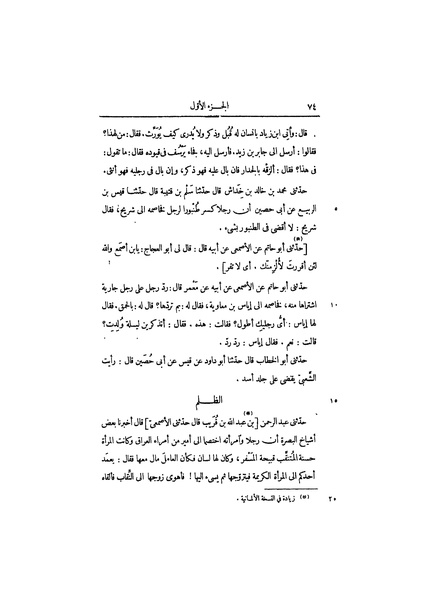 ٧٤ الجزء الأوّل
. قال: وأُتى ابن زياد بانسان له قُبُل وذكر ولا يُدرى كيف يُورَّث. فقال: من لهذا؟
قالوا: أرسل الى جابر بن زيد. فأرسل اليه، بفاء يَرْسُف فى قيوده فقال: ما تقول
فى هذا؟ فقال: ألزقْه بالجدار فان بال عليه فهو ذكر، وإن بال فى رجليه فهو أنثى.
حدّثنى محمد بن خالد بن خِدَاش قال حدّثنا سَلْم بن قتيبة قال حدّثنا قيس بن
٥ الربيع عن أبى حصين أن رجلا كسر طُنْبورا لرجل فخاصمه الى شريح، فقال
شريح : لا أقضى فى الطنبور بشىء .
[حدّثنى أبو حاتم عن الأصمعى عن أبيه قال : قال لى أبو العجاج: يابن أصْمَع والله (*)
لئن أقررتَ لأُلْزِمنّك . أى لا تقر] .
حدّثنى أبو حاتم عن الأصمعى عن أبيه عن مَعْمر قال: ردّ رجل على رجل جارية
١٠ اشتراها منه، فخاصمه الى إياس بن معاوية، فقال له: بم تردّها؟ قال له: بالحمق. فقال
لها إياس : أىُّ رجليك أطول؟ فقالت : هذه . فقال : أتذكرين ليلة وُلِدتِ؟
قالت : نعم . فقال إياس : ردّ ردّ .
حدّثنى أبو الخطاب قال حدّثنا أبو داود عن قيس عن أبى حُصَين قال : رأيت
الشَّعبىّ يقضى على جلد أسد .
١٥ الظلم
حدّثنى عبد الرحمن [بن عبد الله بن قُرَيب قال حدّثنى الأصمعىّ] قال أخبرنا بعض (*)
أشياخ البصرة أن رجلا وآمرأته اختصما الى أمير من أمراء العراق وكانت المرأة
حسنة المُنتَقَب قبيحة المَسْفَر ، وكان لها لسان فكأن العامل مال معها فقال : يعمد
أحدكم الى المرأة الكريمة فيتزوجها ثم يسىء اليها ! فأهوى زوجها الى النِّقاب فألقاه
٢٠ (*) زيادة فى النسخة الألمانية .